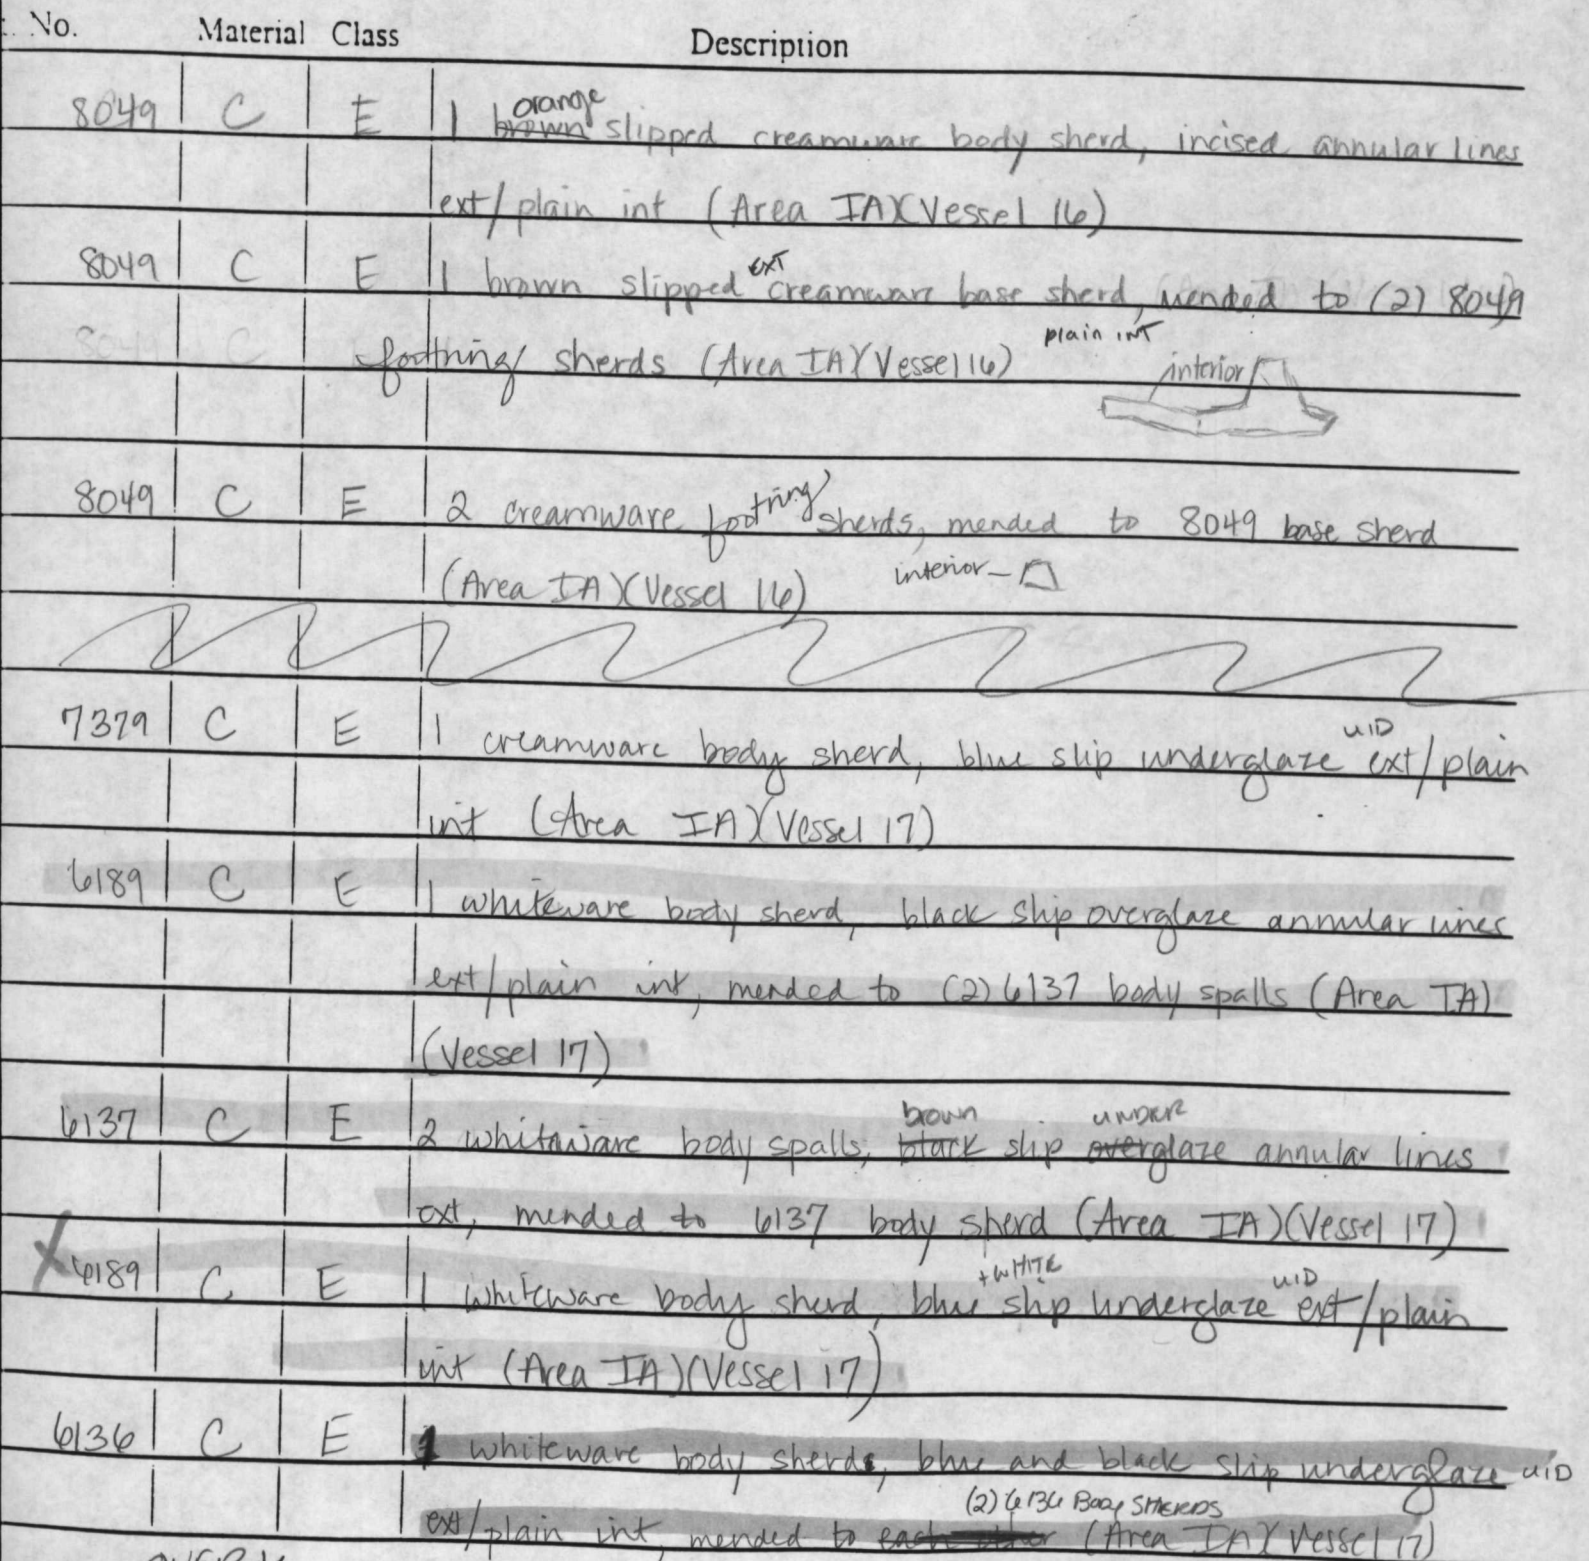 No. Material Class Description
orange
8049 C E 1 brown slipped creamware body sherd, incised annular lines
ext/plain int (Area IA)(Vessel 16)
ext
8049 C E 1 brown slipped creamware base sherd, mended to (2) 8049
8049 C footring sherds (Area IA)(Vessel 16) plain INT
interior
8049 C E 2 creamware footring sherds, mended to 8049 base sherd
(Area IA)(Vessel 16) interior-
7379 C E 1 creamware body sherd, blue slip underglaze UID ext/plain
int (Area IA)(Vessel 17)
6189 C E 1 whiteware body sherd, black slip overglaze annular lines
ext/plain int, mended to (2) 6137 body spalls (Area IA)
(Vessel 17)
brown UNDER
6137 C E 2 whiteware body spalls, black slip overglaze annular lines
ext, mended to 6137 body sherd (Area IA)(Vessel 17)
+WHITE UID
X 6189 C E 1 whiteware body sherd, blue slip underglaze ext/plain
int (Area IA)(Vessel 17)
6136 C E 1 whiteware body sherd, blue and black slip underglaze UID
(2) 6136 Body SHERDS
ext/plain int, mended to each other (Area IA)(Vessel 17)